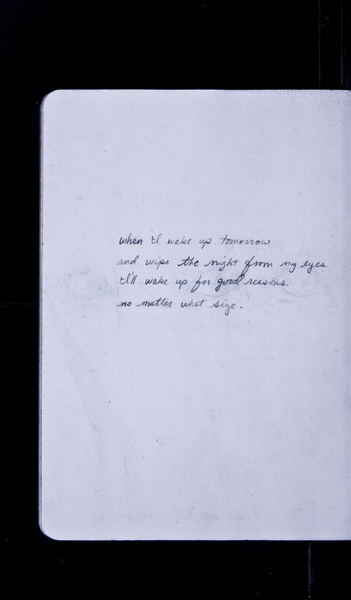 when I wake up tomorrow
and wipe the night from my eyes
I'll wake up for good reasons
no matter what size.